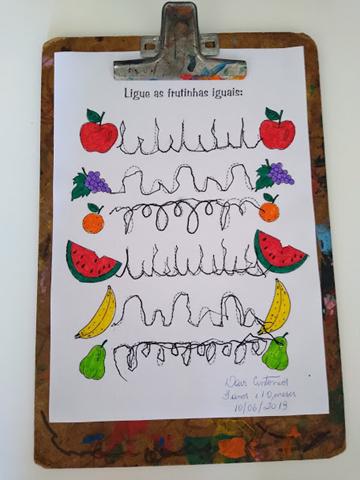 Ligue as frutinhas iguais:
Davi
3 anos e 10 meses
10/06/2019